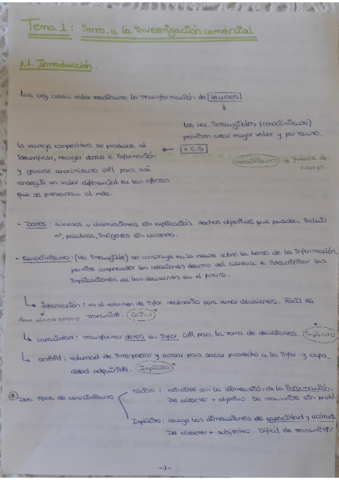 Tema 1: intro. a la investigación comercial
1.1. Introducción.
Las org crean valor mediante la transformación de recursos
Los rec. intangibles (conocimientos)
permiten crear mayor valor y por tanto,
V.C.S
La ventaja competitiva se produce al
identificar, recoger datos e información
y generar conocimiento útil para así
conseguir un valor diferencial en las ofertas
que se presentan al mdo.
conocimiento → fuente de
- Datos: sucesos u observaciones sin explicación. Hechos objetivos que pueden incluir
nº, palabras, imágenes sin contexto.
- Conocimiento: (rec. intangible) se construye en la mente sobre la base de la información,
permite comprender las relaciones dentro del sistema e identificar las
implicaciones de las decisiones en el futuro.
↳ Información: es el volumen de infor necesario para tomar decisiones. Fácil de
transmitir.
↳ capacidad: transformar datos en infor útil para la toma de decisiones. Implícito
↳ actitud: voluntad de interpretar y actuar para sacar provecho a la infor y capa.
cidad adquirida. Implícito
Dos tipos de conocimiento
: coincide con la dimensión de la información.
De carácter + objetivo. Se transmite sin probl
Implícito: recoge las dimensiones de capacidad y actitud.
De carácter + subjetivo. Difícil de transmitir
-1-